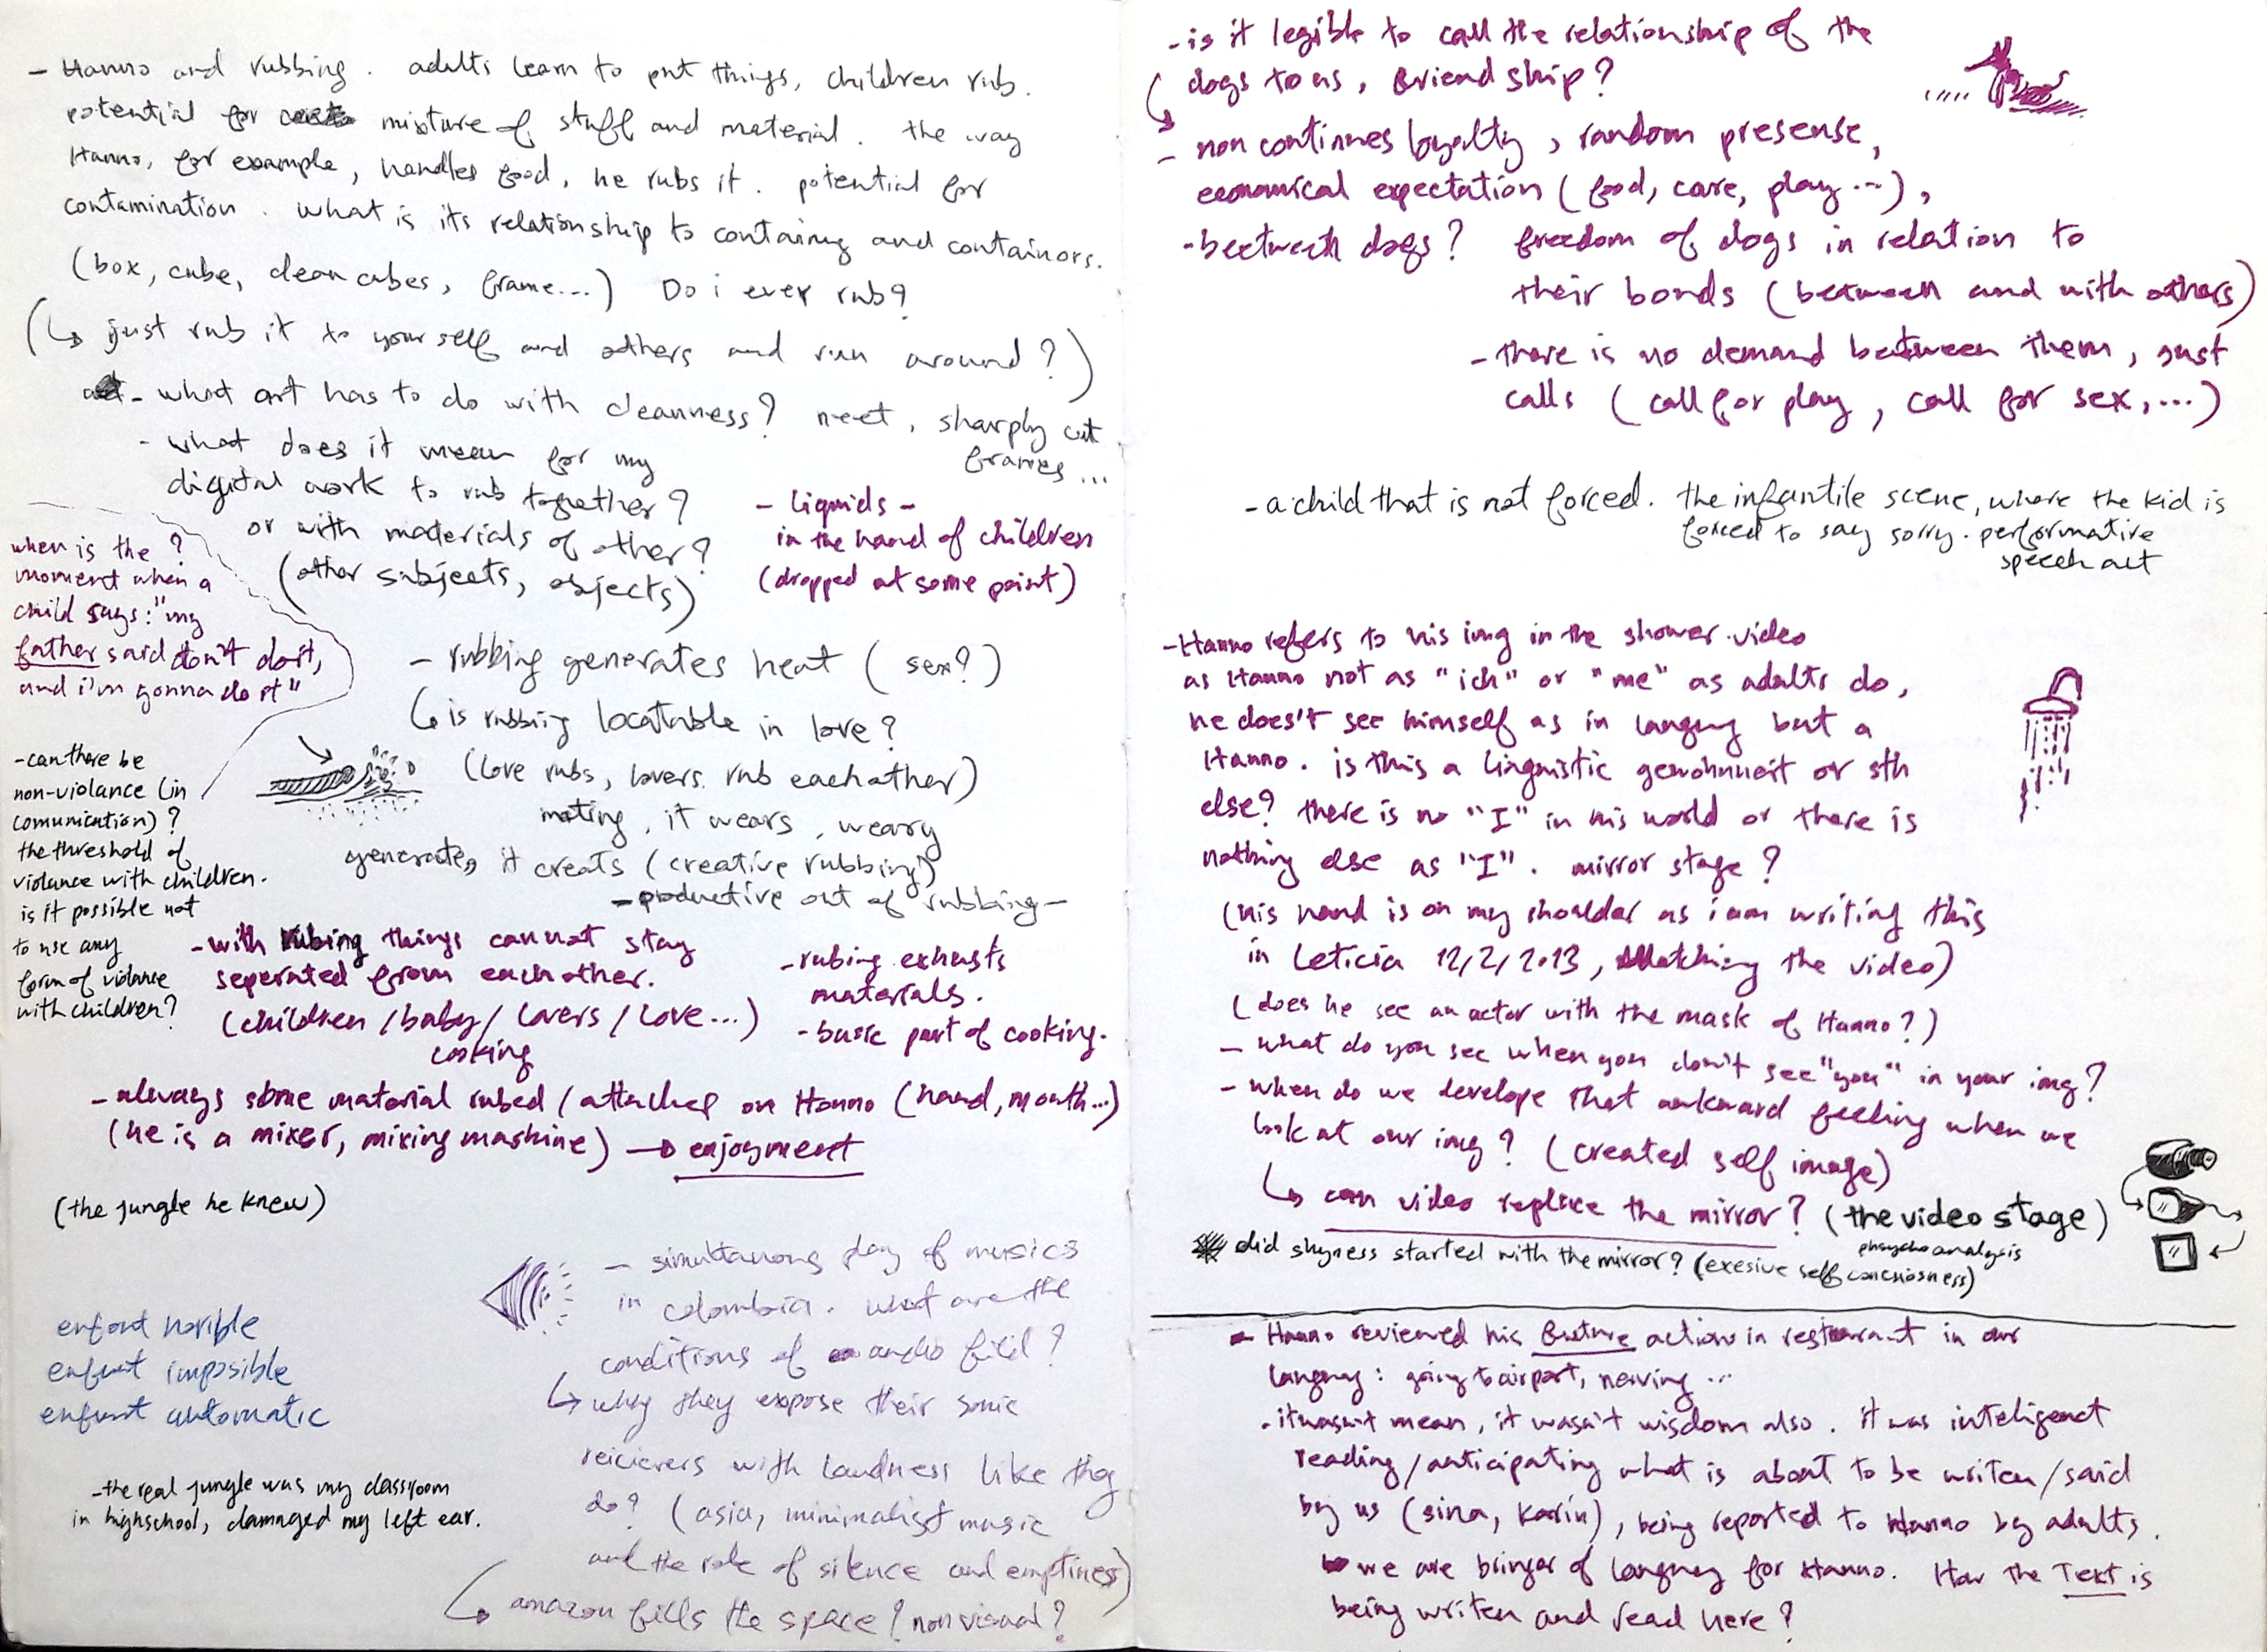 - Hanno and rubbing. adults learn to put things, children rub.
potential for mixture of stuff and material. the way
Hanno, for example, handles food, he rubs it. potential for
contamination. what is its relationship to containing and containors.
(box, cube, clean cubes, frame...) Do i ever rub?
(↳ just rub it to yourself and others and run around?)
- what art has to do with cleanness? neet, sharply cut
frames ...
- what does it mean for my
digital work to rub together?
or with materials of other?
(other subjects, objects)
- Liquids -
in the hand of children
(dropped at some point)
when is the ?
moment when a
child says: "my
father said don't do it,
and i'm gonna do it"
- rubbing generates heat (sex?)
↳ is rubbing locatable in love?
(love rubs, lovers rub eachather)
mating, it wears, weary
generates, it creats (creative rubbing)
- productive out of rubbing -
- can there be
non-violance (in
comunication)?
the threshold of
violance with children.
is it possible not
to use any
form of violance
with children?
- with rubing things cannot stay
seperated from eachother.
(children / baby / lovers / love...)
cooking
- rubing exhusts
materials.
- basic part of cooking.
- always some material rubed / attached on Hanno (hand, mouth...)
(he is a mixer, mixing machine) → enjoyment
(the jungle he knew)
- simultanous play of musics
in colombia. what are the
conditions of audio fild?
↳ why they expose their sonic
reicievers with loudness like they
do? (asia, minimalist music
and the role of silence and emptines)
↳ amazon fills the space? non visual?
enfant horible
enfant imposible
enfant automatic
- the real jungle was my classroom
in highschool, damaged my left ear.
- is it legible to call the relationship of the
dogs to us, friend ship?
- non continues loyalty, random presense,
economical expectation (food, care, play ...),
- beetween dogs? freedom of dogs in relation to
their bonds (between and with others)
- there is no demand between them, just
calls (call for play, call for sex, ...)
- a child that is not forced. the infantile scene, where the kid is
forced to say sorry. performative
speech act
- Hanno refers to his img in the shower video
as Hanno not as "ich" or "me" as adults do,
he does't see himself as in languag but a
Hanno. is this a linguistic gewohnheit or sth
else? there is no "I" in his world or there is
nothing else as "I". mirror stage?
(his hand is on my shoulder as i am writing this
in Leticia 12/2/2013, Watching the video)
(does he see an actor with the mask of Hanno?)
- what do you see when you don't see "you" in your img?
- when do we develope that awkward feeling when we
look at our img? (created self image)
↳ can video replace the mirror? (the video stage)
phsychoanalysis
did shyness started with the mirror? (exesive self conciosness)
- Hanno reviewed his future actions in resturant in our
languag: going to airport, ...
- it wasn't mean, it wasn't wisdom also. it was inteligenct
reading/anticipating what is about to be writen/said
by us (sina, Karin), being reported to Hanno by adults.
we are bringer of languag for Hanno. How the Text is
being writen and read here?